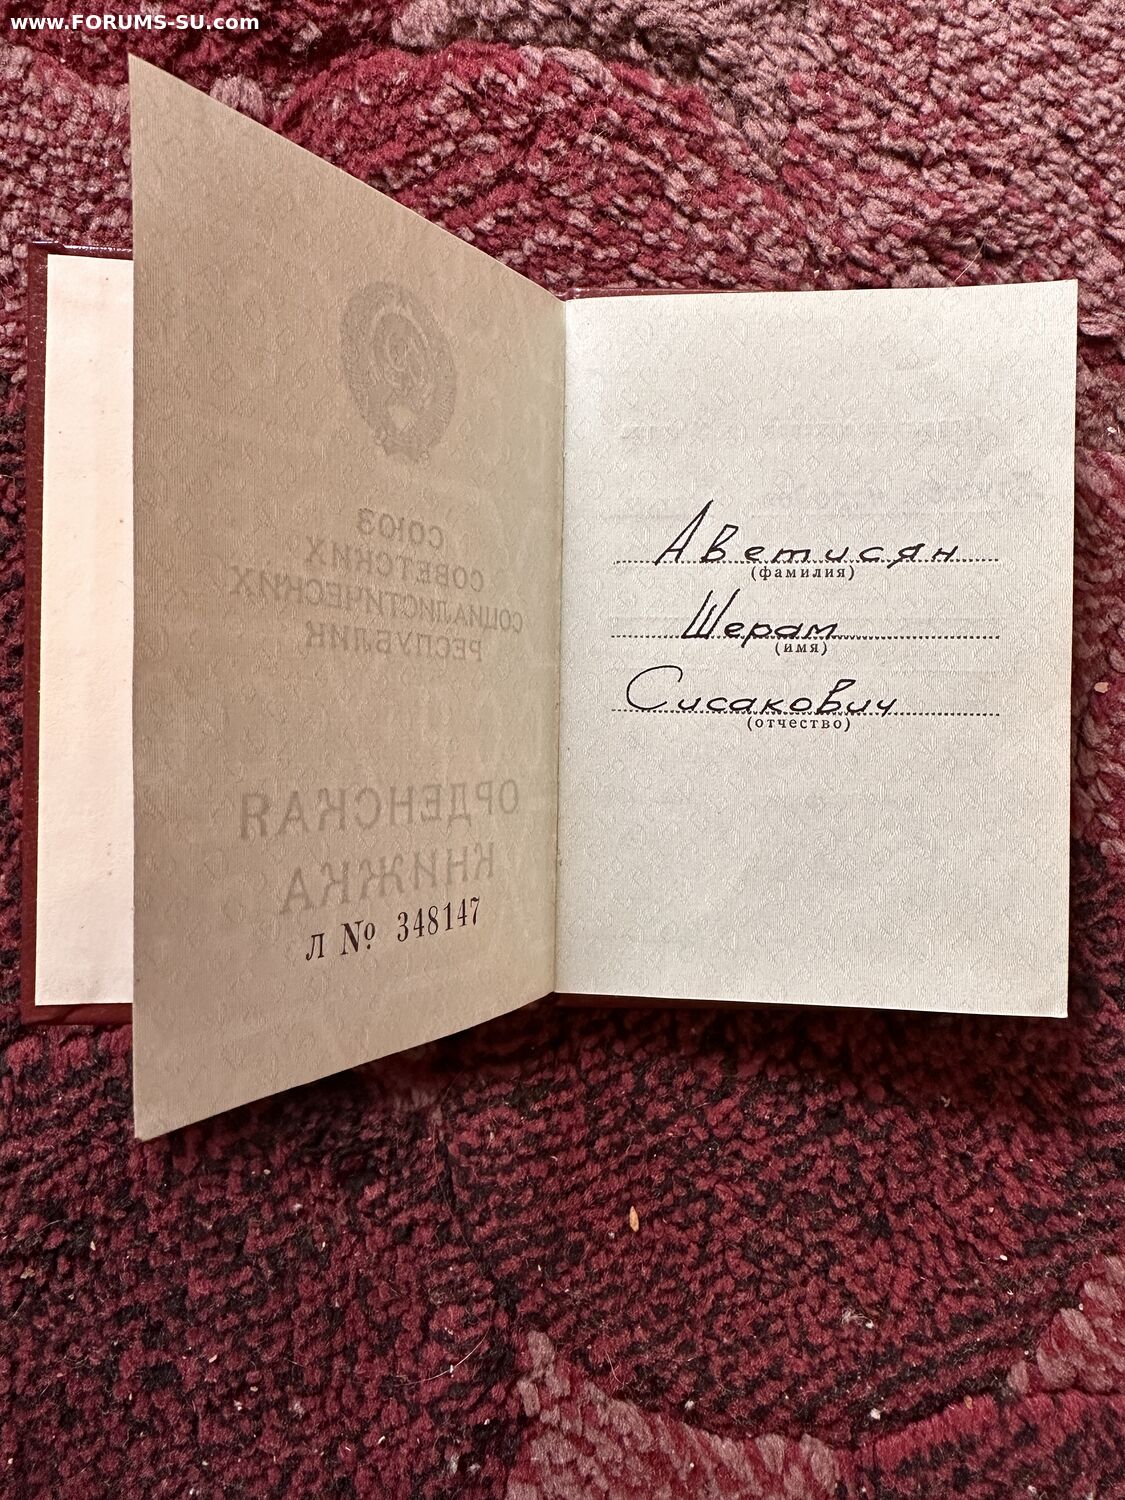 www.FORUMS-SU.com
СОЮЗ
СОВЕТСКИХ
СОЦИАЛИСТИЧЕСКИХ
РЕСПУБЛИК
ОРДЕНСКАЯ
КНИЖКА
Л № 348147
Аветисян
(фамилия)
Шерам
(имя)
Сисакович
(отчество)